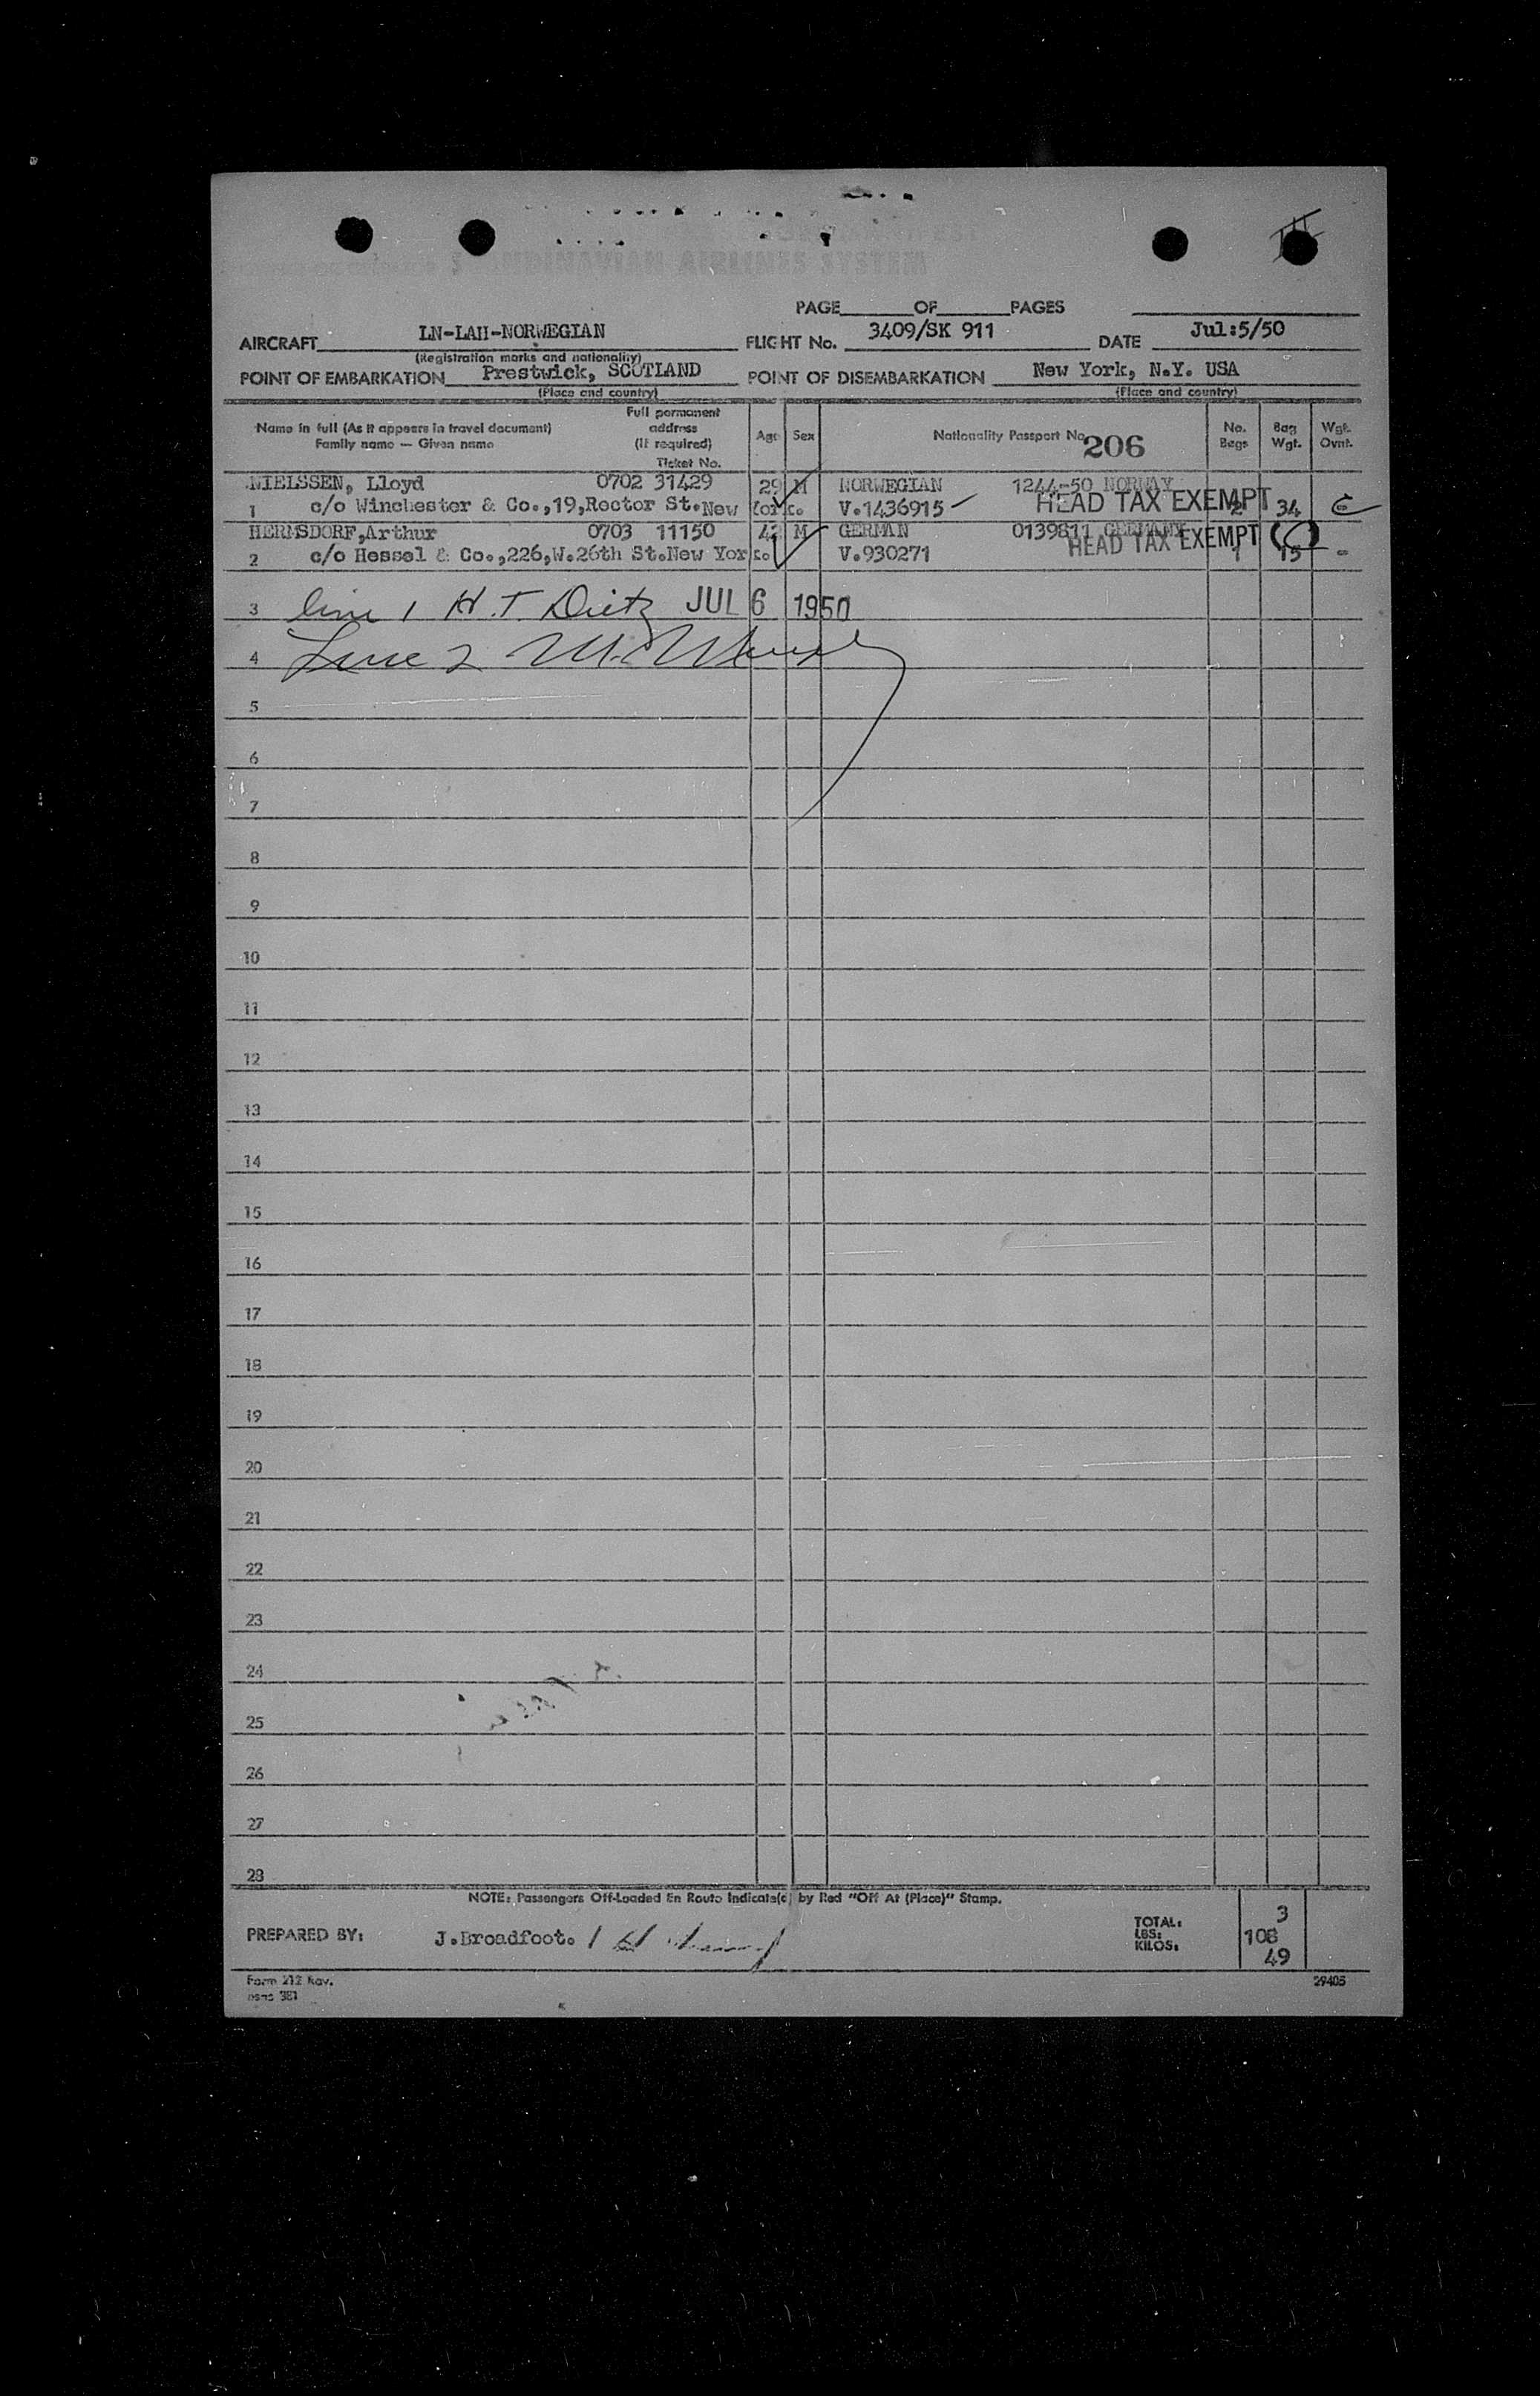 SCANDINAVIAN AIRLINES SYSTEM
PAGE OF PAGES
AIRCRAFT LN-LAH-NORWEGIAN FLIGHT No. 3409/SK 911 DATE Jul:5/50
(Registration marks and nationality)
POINT OF EMBARKATION Prestwick, SCOTLAND POINT OF DISEMBARKATION New York, N.Y. USA
(Place and country) (Place and country)
Name in full (As it appears in travel document)
Family name — Given name
Full permanent
address
(If required)
Ticket No.
Age Sex Nationality Passport No. 206
No.
Bags
Bag
Wgt.
Wgt.
Ovnt.
NIELSSEN, Lloyd 0702 31429 29 M NORWEGIAN 1244-50 NORWAY
1 c/o Winchester & Co.,19,Rector St.New York. V.1436915 HEAD TAX EXEMPT 2 34
HERMSDORF,Arthur 0703 11150 42 M GERMAN 0139811 GERMANY
2 c/o Hessel & Co.,226,W.26th St.New York. V.930271 HEAD TAX EXEMPT 1 15 -
3 line 1 H.T. Dietz JUL 6 1950
4 Line 2
5
6
7
8
9
10
11
12
13
14
15
16
17
18
19
20
21
22
23
24
25
26
27
28
NOTE: Passengers Off-Loaded En Route Indicate(d) by Red "Off At (Place)" Stamp.
PREPARED BY: J.Broadfoot.
TOTAL: 3
LBS: 108
KILOS: 49
Form 212 Rev. 29405